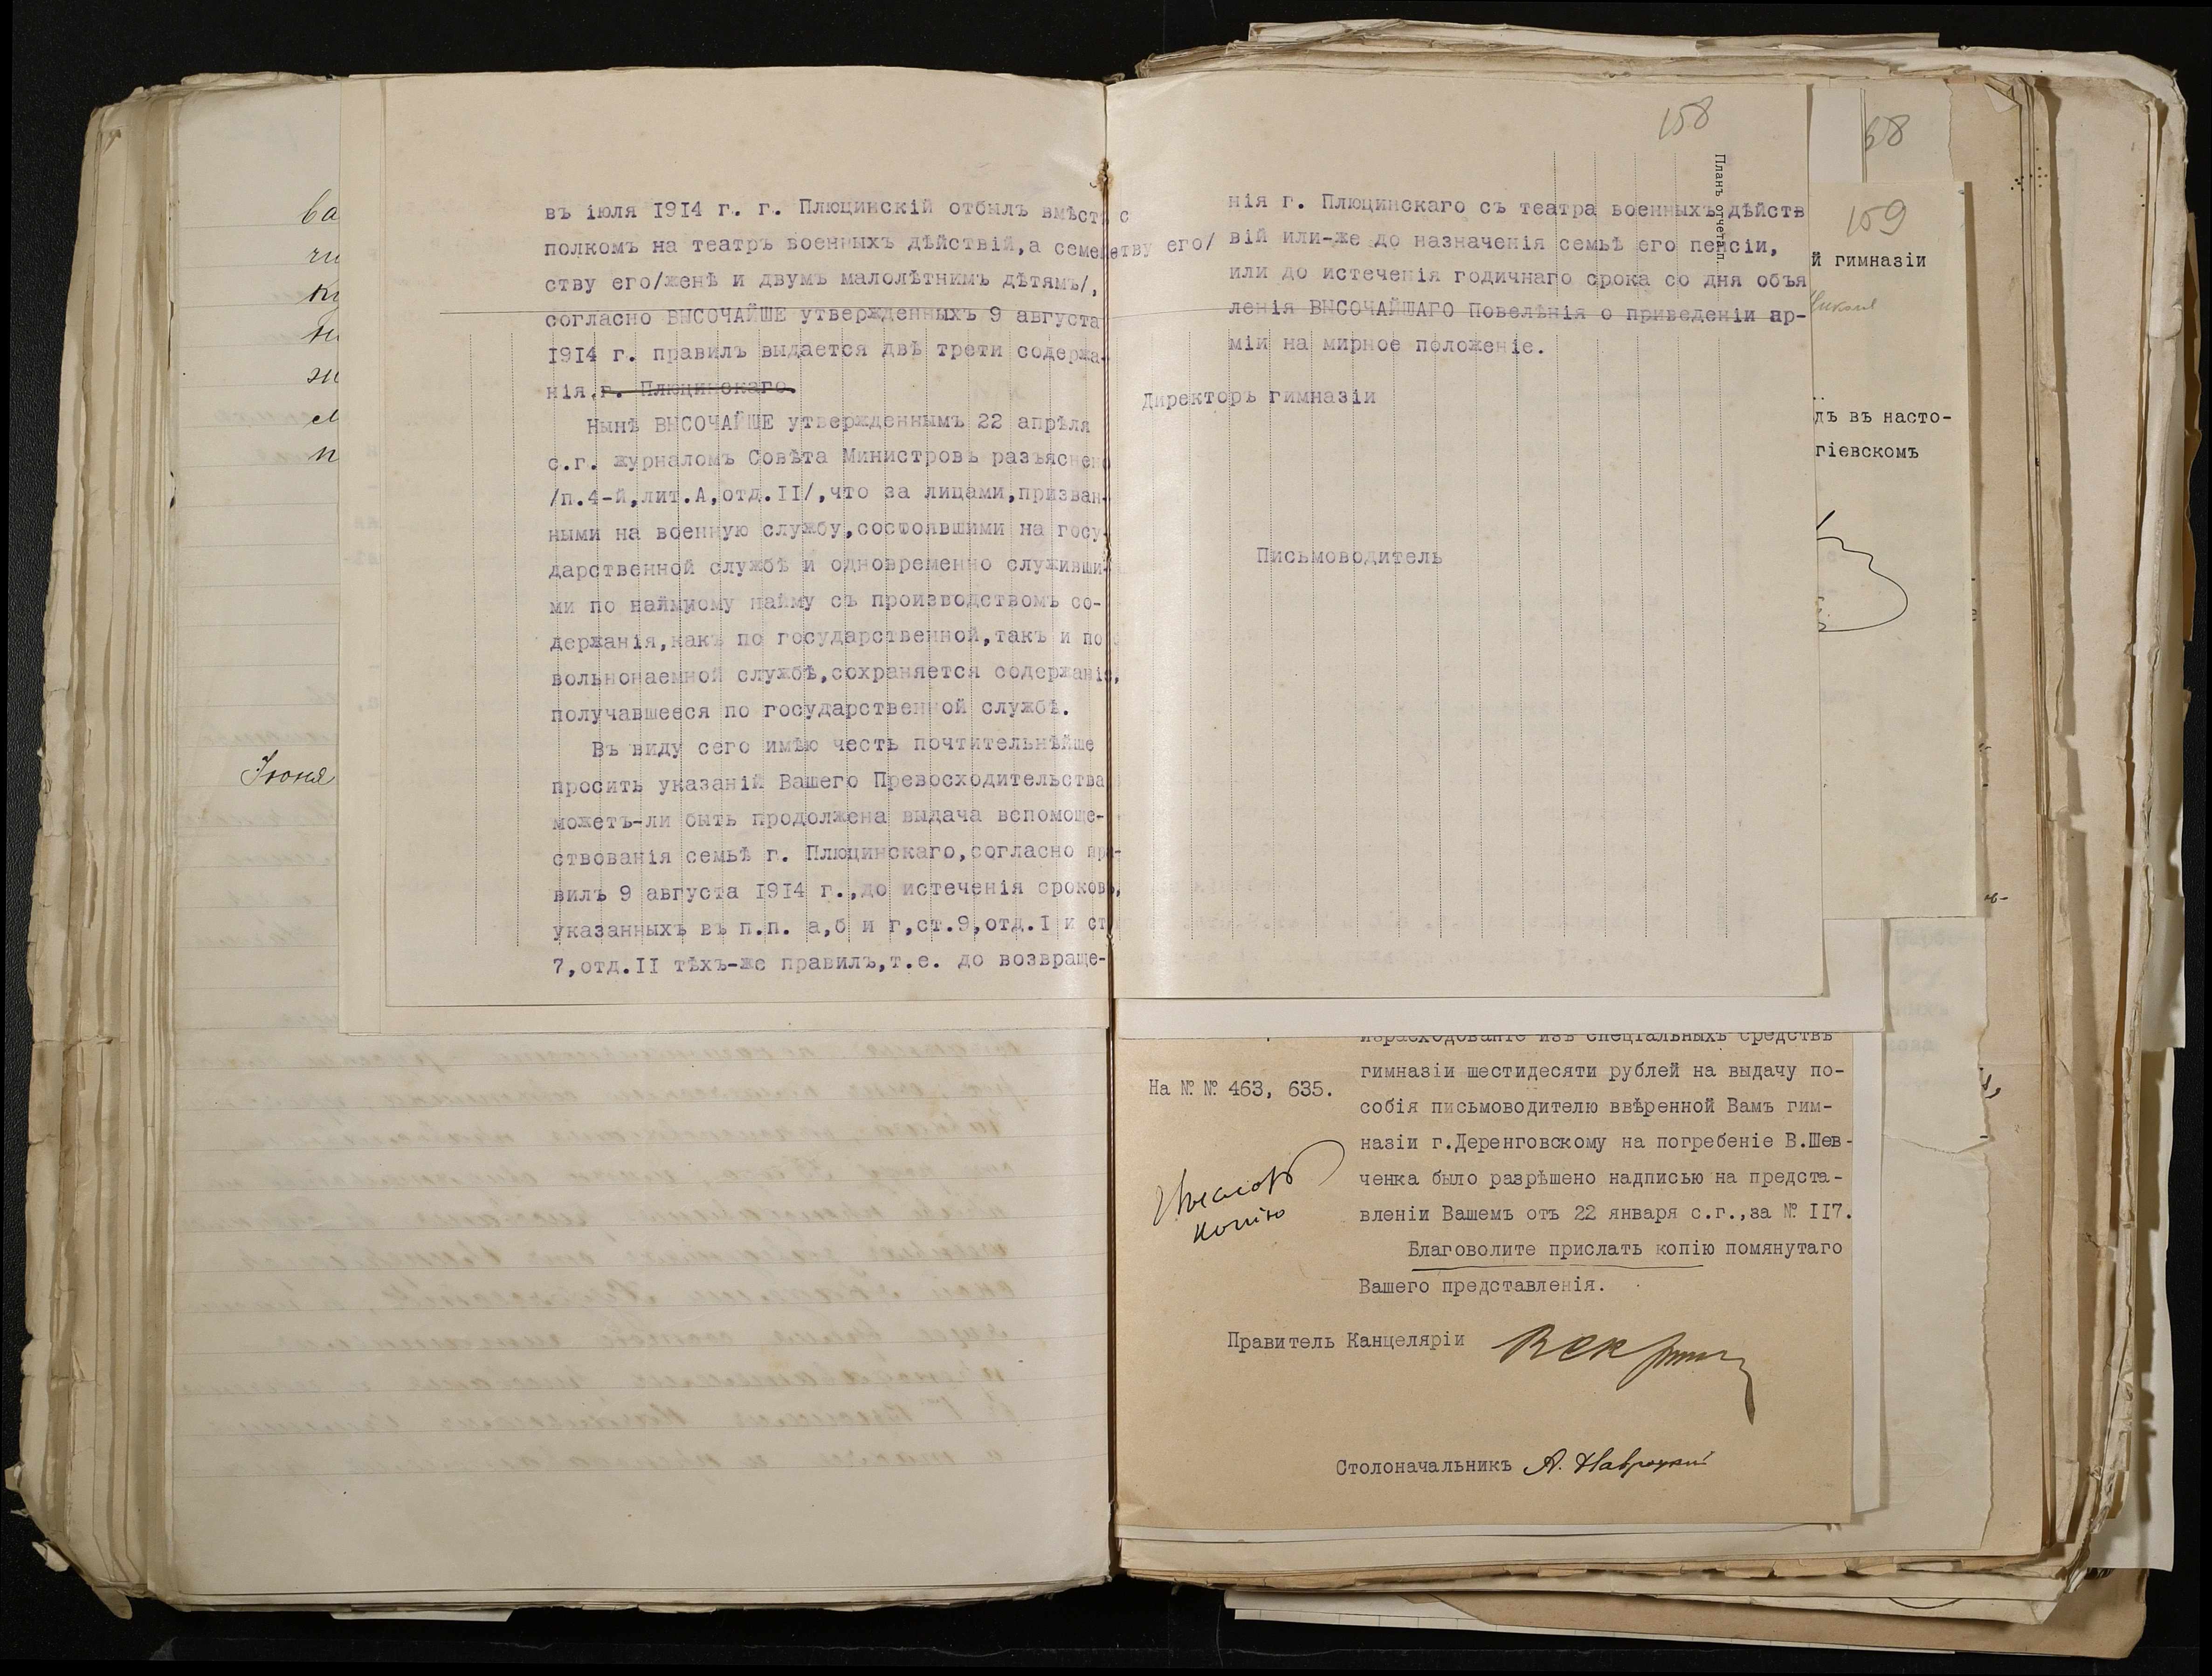 въ іюля 1914 г. г. Плюцинскій отбылъ вмѣстѣ с
полкомъ на театръ военныхъ дѣйствій,а семейству его/
ству его/женѣ и двумъ малолѣтнимъ дѣтямъ/,
согласно ВЫСОЧАЙШЕ утвержденныхъ 9 августа
1914 г. правилъ выдается двѣ трети содержа-
нія г. Плюцинскаго.
Нынѣ ВЫСОЧАЙШЕ утвержденнымъ 22 апрѣля
с.г. журналомъ Совѣта Министровъ разъяснено
/п.4-й,лит.А,отд.II/,что за лицами,призван-
ными на военную службу,состоявшими на госу-
дарственной службѣ и одновременно служивши-
ми по найму съ производствомъ со-
держанія,какъ по государственной,такъ и по
вольнонаемной службѣ,сохраняется содержаніе,
получавшееся по государственной службѣ.
Въ виду сего имѣю честь почтительнѣйше
просить указаній Вашего Превосходительства
можетъ-ли быть продолжена выдача вспомоще-
ствованія семьѣ г. Плюцинскаго,согласно пра-
вилъ 9 августа 1914 г.,до истеченія сроковъ,
указанныхъ въ п.п. а,б и г,ст.9,отд.I и ст
7,отд.II тѣхъ-же правилъ,т.е. до возвраще-
158
Планъ отчета п.
нія г. Плюцинскаго съ театра военныхъ дѣйств
вій или-же до назначенія семьѣ его пенсіи,
или до истеченія годичнаго срока со дня объя
ленія ВЫСОЧАЙШАГО Повелѣнія о приведеніи ар-
міи на мирное положеніе.
Директоръ гимназіи
Письмоводитель
68
159
й гимназіи
дъ въ насто-
гіевскомъ
ва
ги
ки
ни
жи
ел
п
Іюня
израсходованіе изъ спеціальныхъ средствъ
гимназіи шестидесяти рублей на выдачу по-
собія письмоводителю ввѣренной Вамъ гим-
назіи г.Деренговскому на погребеніе В.Шев-
ченка было разрѣшено надписью на предста-
вленіи Вашемъ отъ 22 января с.г.,за № II7.
Благоволите прислать копію помянутаго
Вашего представленія.
На №№ 463, 635.
копію
Правитель Канцеляріи
Столоначальникъ А. Навроцкій